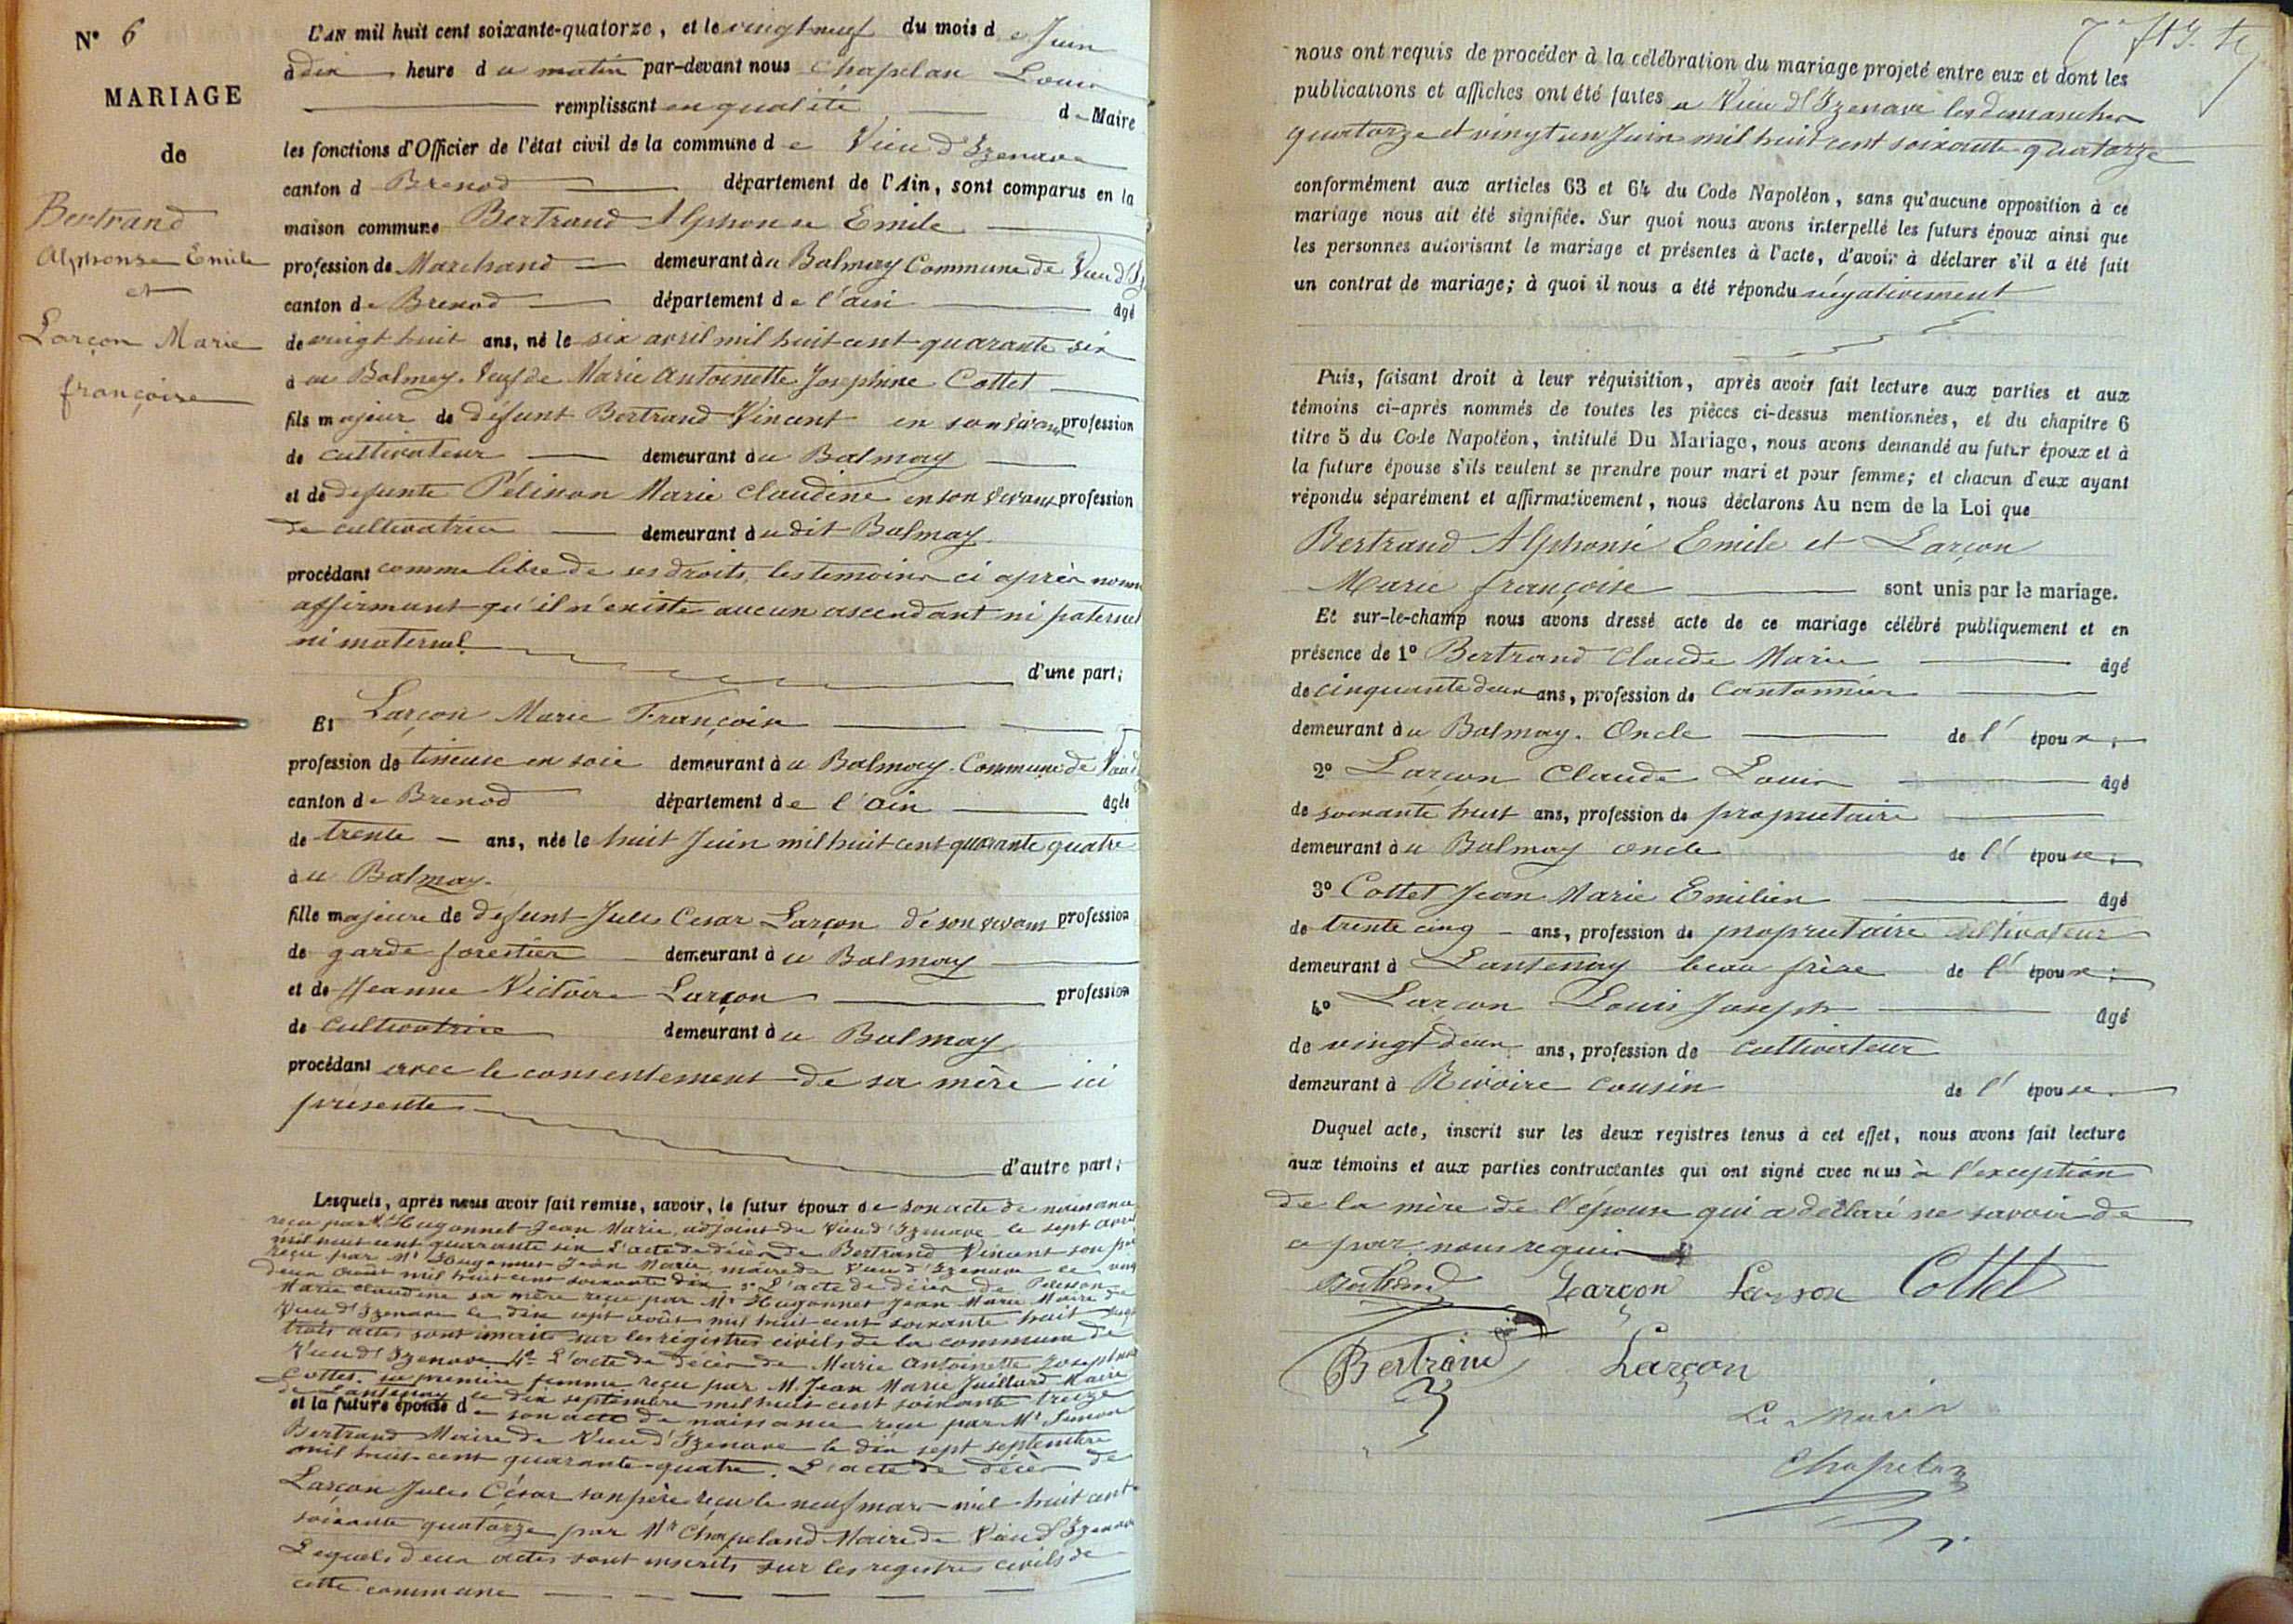 N° 6
MARIAGE
de
Bertrand
Alphonse Emile
et
Larçon Marie
françoise
L'AN mil huit cent soixante-quatorze, et le vingt neuf du mois de Juin
à dix heure du matin par-devant nous Chapelan Louis
remplissant en qualité de Maire
les fonctions d'Officier de l'état civil de la commune de Vieu d'Izenave
canton d Brenod département de l'Ain, sont comparus en la
maison commune Bertrand Alphonse Emile
profession de Marchand demeurant au Balmay Commune de Vieu d'Iz
canton de Brenod département de l'ain âgé
de vingt huit ans, né le six avril mil huit cent quarante six
au Balmay. Veuf de Marie Antoinette Josephine Cottet
fils majeur de défunt Bertrand Vincent en son vivant profession
de cultivateur demeurant au Balmay
et de defunte Pélisson Marie Claudine en son vivant profession
de cultivatrice demeurant audit Balmay
procédant comme libre de ses droits, les temoins ci après nommé
affirmant qu'il n'existe aucun ascendant ni paternel
ni maternel
d'une part;
Et Larçon Marie Françoise
profession de tisseuse en soie demeurant au Balmay. Commune de Vieu d
canton de Brenod département de l'ain âgée
de trente ans, née le huit Juin mil huit cent quarante quatre
au Balmay.
fille majeure de defunt Jules Cesar Larçon de son vivant profession
de garde forestier demeurant au Balmay
et de Jeanne Victoire Larçon profession
de Cultivatrice demeurant au Balmay
procédant avec le consentement de sa mère ici
présente
d'autre part;
Lesquels, après nous avoir fait remise, savoir, le futur époux de son acte de naissance
reçu par Mr Hugonnet Jean Marie, adjoint de Vieu d'Izenave le sept avril
mil huit cent quarante six L'acte de décès de Bertrand Vincent son père
reçu par Mr Hugonnet Jean Marie maire de Vieu d'Izenave le vingt
deux août mil huit cent soixante dix 3° L'acte de décès de Pelisson
Marie Claudine sa mère reçu par Mr Hugonnet Jean Marie Maire de
Vieu d'Izenave le dix sept août mil huit cent soixante huit
trois actes sont inscrits sur les registres civils de la commune de
Vieu d'Izenave 4° L'acte de décès de Marie Antoinette Josephine
Cottet. sa première femme reçu par M. Jean Marie Juillard Maire
de Lantenay le dix septembre mil huit cent soixante treize
et la future épouse de son acte de naissance reçu par Mr Simon
Bertrand Maire de Vieu d'Izenave le dix sept septembre
mil huit cent quarante quatre. L'acte de décès de
Larçon Jules César son père reçu le neuf mars mil huit cent
soixante quatorze par Mr Chapeland Maire de Vieu d'Izenave
Lequels deux actes sont inscrits sur les registres civils de
cette commune
nous ont requis de procéder à la célébration du mariage projeté entre eux et dont les
publications et affiches ont été faites a Vieu d'Izenave les dimanches
quatorze et vingt un Juin mil huit cent soixante quatorze
conformément aux articles 63 et 64 du Code Napoléon, sans qu'aucune opposition à ce
mariage nous ait été signifiée. Sur quoi nous avons interpellé les futurs époux ainsi que
les personnes autorisant le mariage et présentes à l'acte, d'avoir à déclarer s'il a été fait
un contrat de mariage; à quoi il nous a été répondu négativement
Puis, faisant droit à leur réquisition, après avoir fait lecture aux parties et aux
témoins ci-après nommés de toutes les pièces ci-dessus mentionnées, et du chapitre 6
titre 5 du Code Napoléon, intitulé Du Mariage, nous avons demandé au futur époux et à
la future épouse s'ils veulent se prendre pour mari et pour femme; et chacun d'eux ayant
répondu séparément et affirmativement, nous déclarons Au nom de la Loi que
Bertrand Alphonse Emile et Larçon
Marie françoise sont unis par le mariage.
Et sur-le-champ nous avons dressé acte de ce mariage célébré publiquement et en
présence de 1° Bertrand Claude Marie âgé
de cinquante deux ans, profession de Cantonnier
demeurant au Balmay. Oncle de l'époux;
2° Larçon Claude Louis âgé
de soixante huit ans, profession de propriétaire
demeurant au Balmay oncle de l'épouse;
3° Cottet Jean Marie Emilien âgé
de trente cinq ans, profession de proprietaire cultivateur
demeurant à Lantenay beau frère de l'époux;
4° Larçon Louis Joseph âgé
de vingt deux ans, profession de Cultivateur
demeurant à Rivoire Cousin de l'épouse
Duquel acte, inscrit sur les deux registres tenus à cet effet, nous avons fait lecture
aux témoins et aux parties contractantes qui ont signé avec nous à l'exception
de la mère de l'épouse qui a déclaré ne savoir de
ce par nous requis
Bertrand Larçon Larson Cottet
Bertrand Larçon
Le Maire
Chapelan